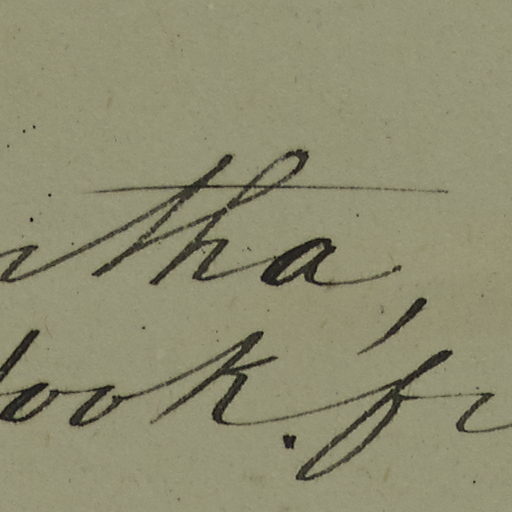 tha,
ook. fi